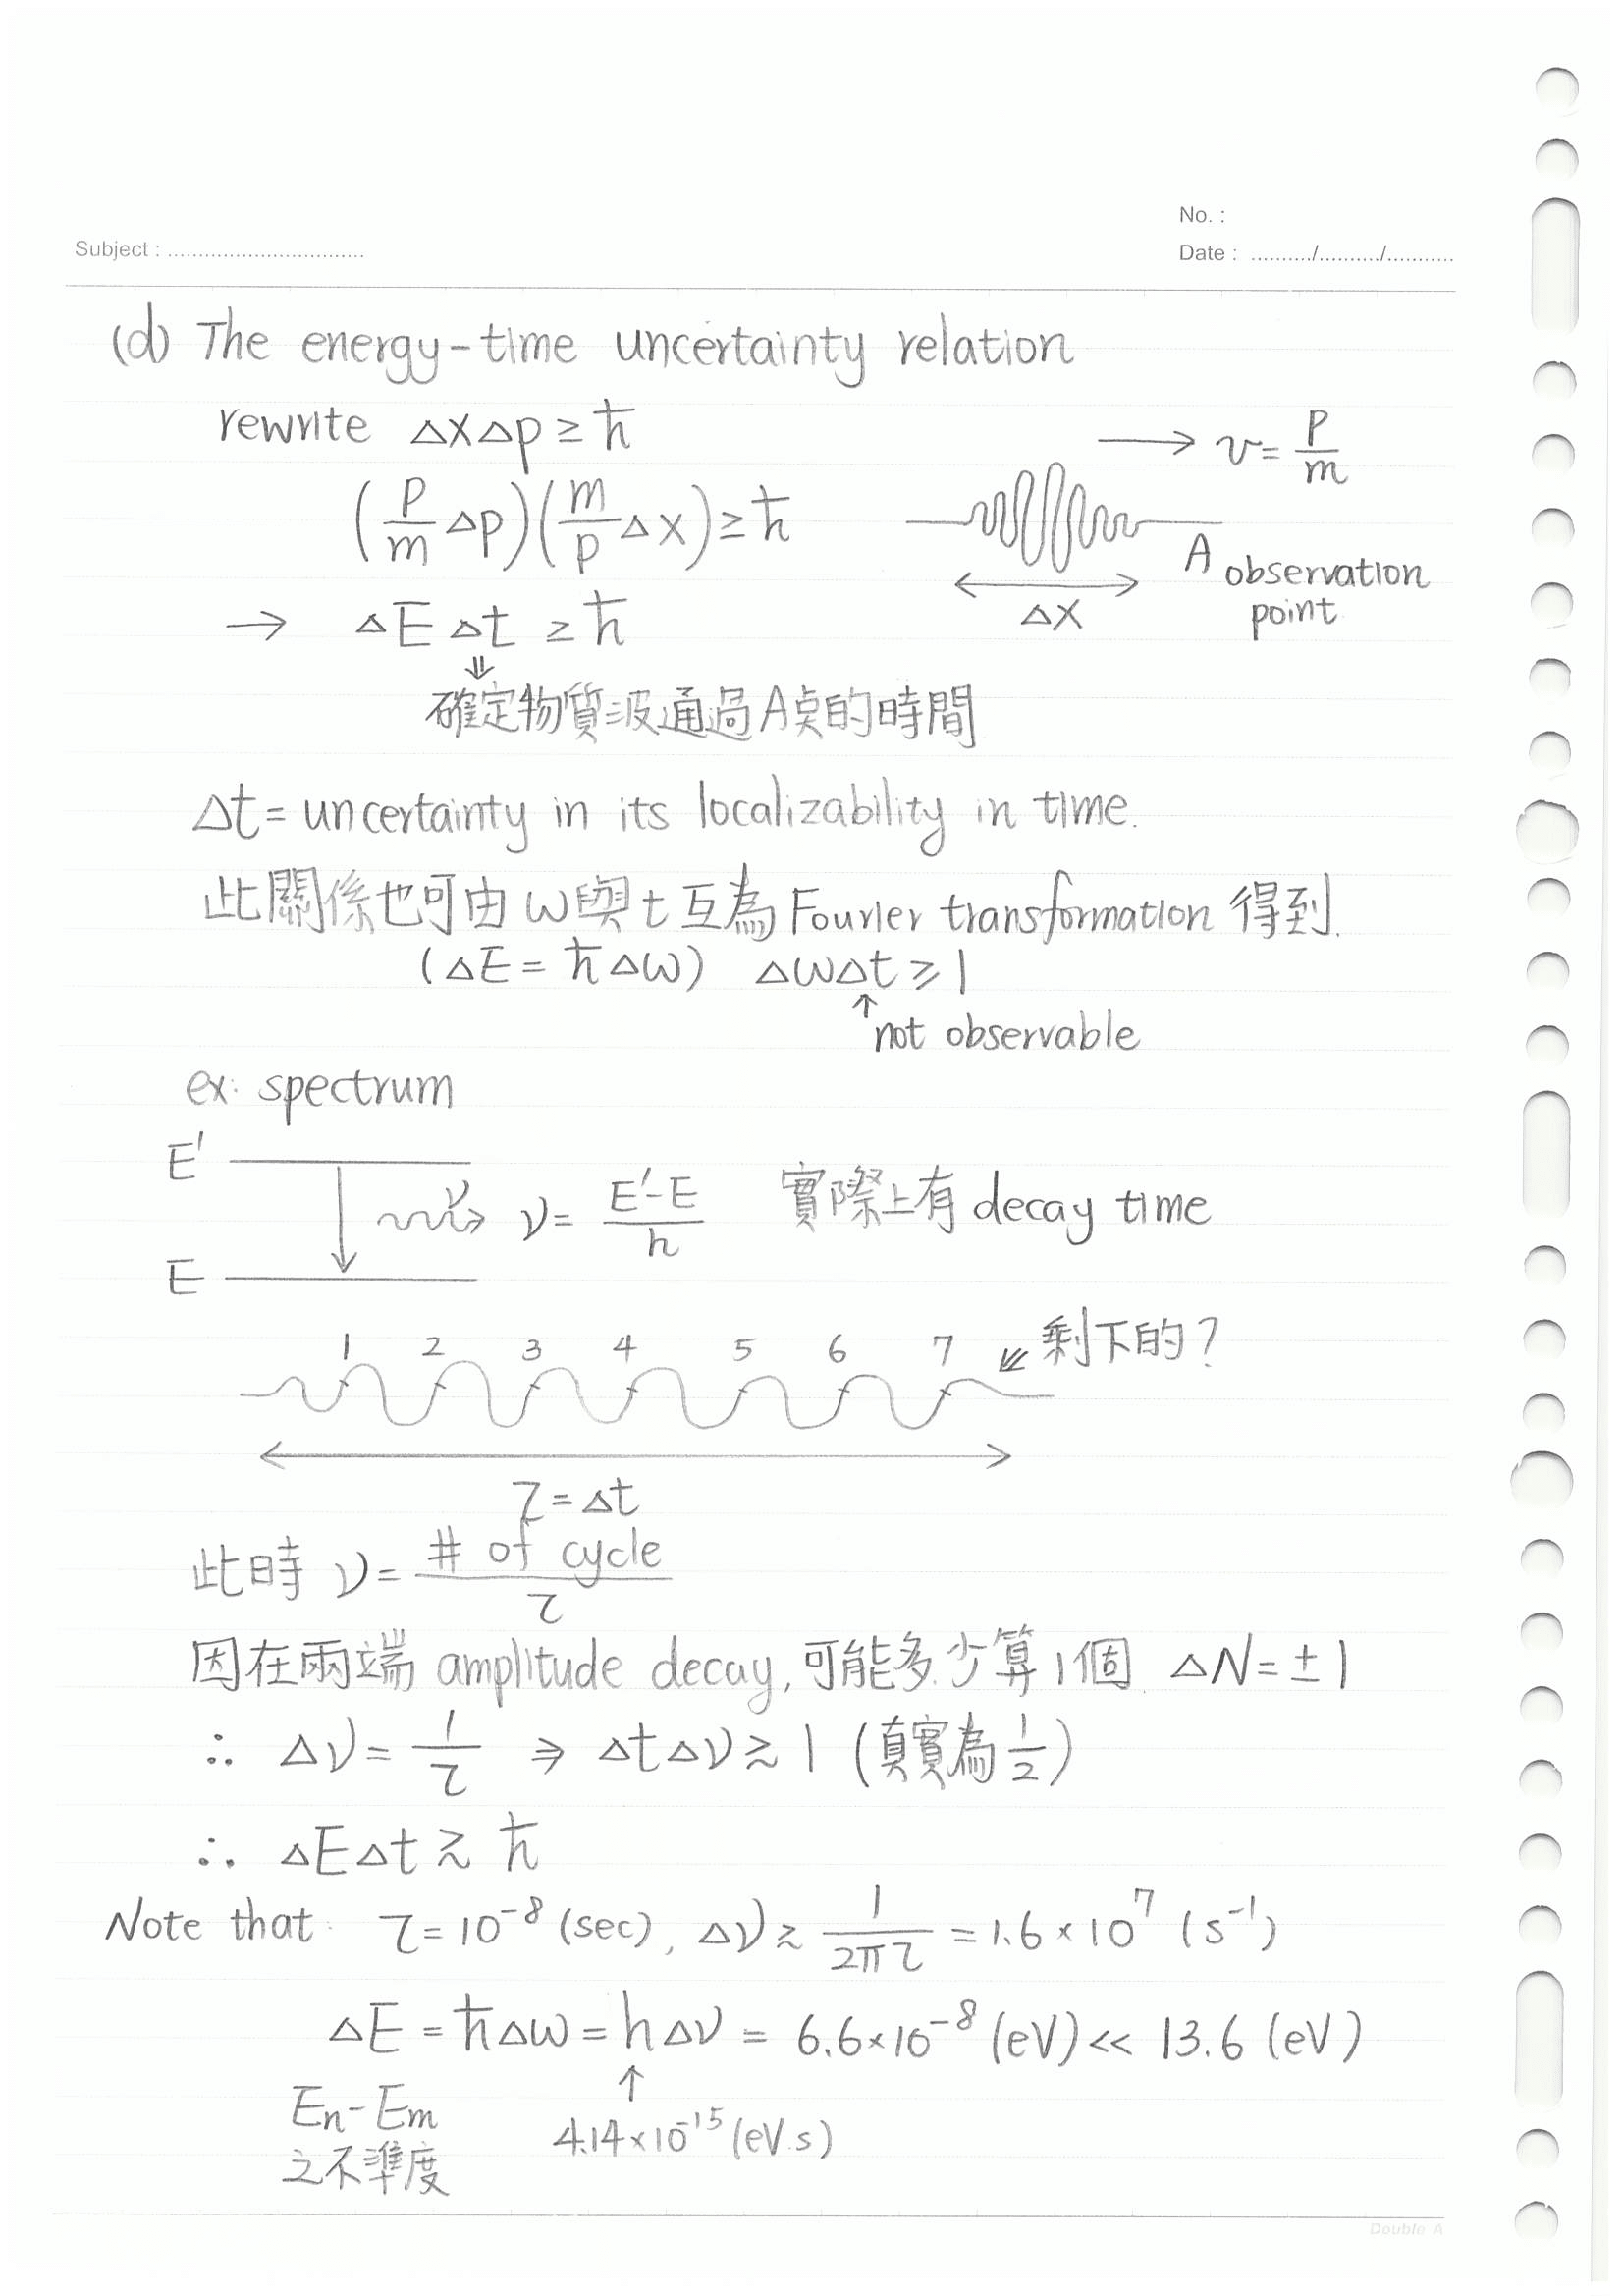 No. :
Subject : ................................
Date : ........../........../...........
(d) The energy-time uncertainty relation
rewrite ΔxΔp ≥ ħ
→ v = p/m
(p/m Δp)(m/p Δx) ≥ ħ
A observation point
Δx
→ ΔE Δt ≥ ħ
⇓
確定物質波通過A點的時間
Δt = uncertainty in its localizability in time.
此關係也可由 ω與 t 互為 Fourier transformation 得到.
(ΔE = ħΔω) ΔωΔt ≥ 1
↑
not observable
ex: spectrum
E'
ν
ν = (E'-E)/h 實際上有 decay time
E
1 2 3 4 5 6 7 ⇙ 剩下的?
τ = Δt
此時 ν = # of cycle / τ
因在兩端 amplitude decay, 可能多.少算1個. ΔN = ±1
∴ Δν = 1/τ ⇒ ΔtΔν ≳ 1 (真實為 1/2)
∴ ΔEΔt ≳ ħ
Note that: τ = 10⁻⁸ (sec), Δν ≳ 1/(2πτ) = 1.6×10⁷ (s⁻¹)
ΔE = ħΔω = hΔν = 6.6×10⁻⁸ (eV) << 13.6 (eV)
↑
En-Em
4.14×10⁻¹⁵ (eV.s)
之不準度
Double A